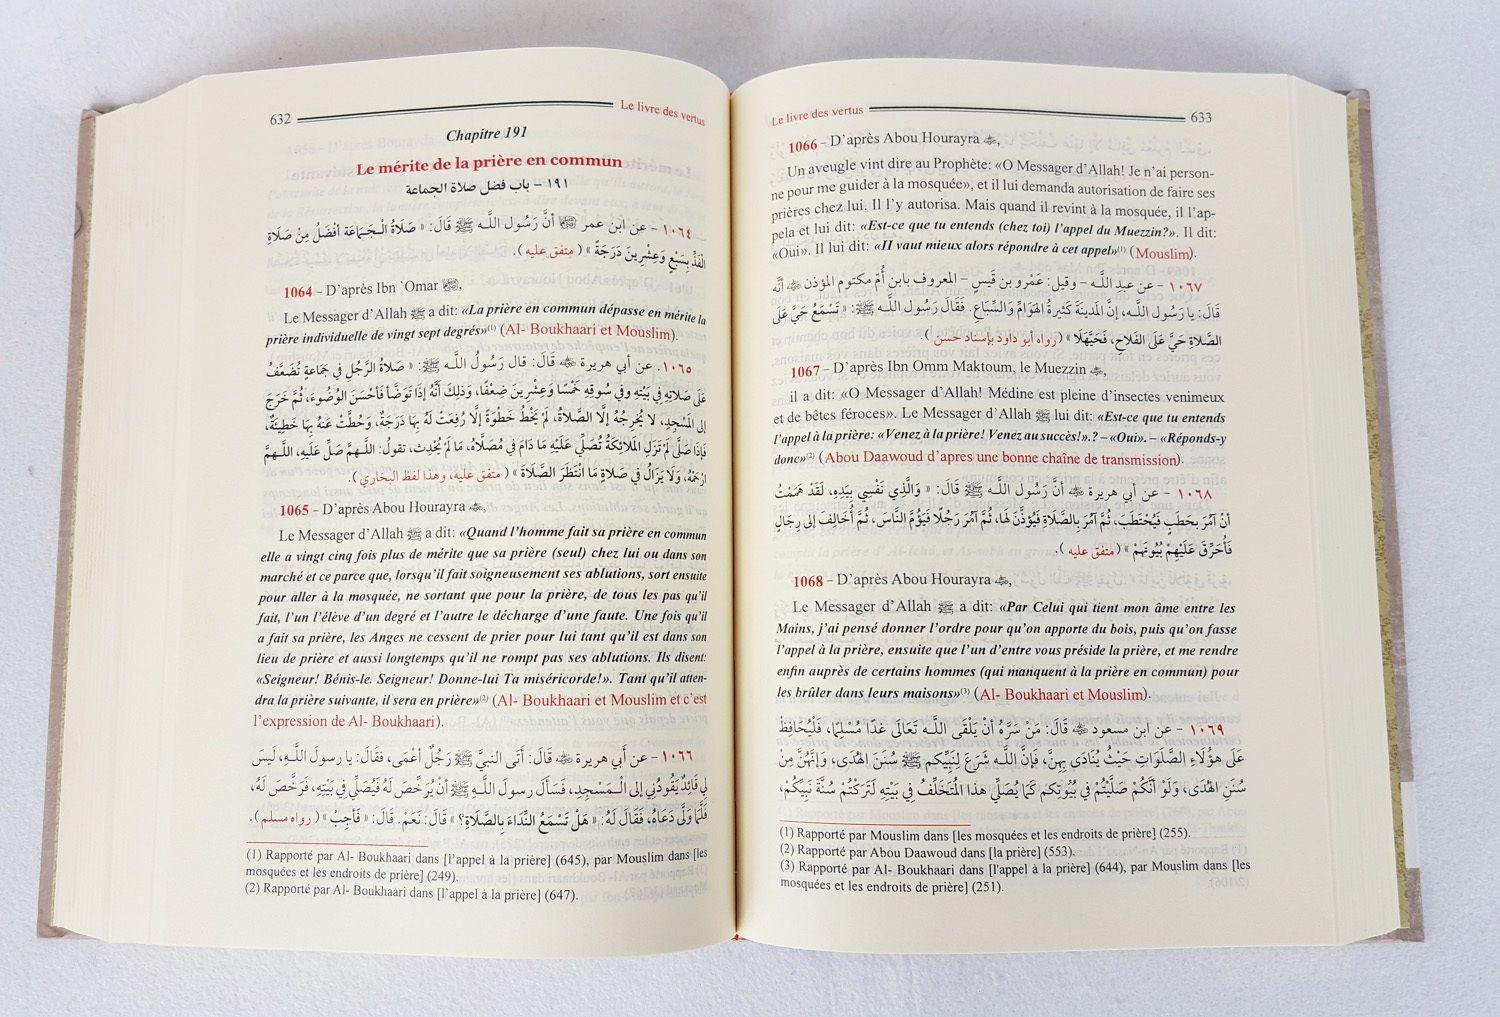 632
Le livre des vertus
Chapitre 191
Le mérite de la prière en commun
١٩١ – باب فضل صلاة الجماعة
١٠٦٤ – عن ابن عمر ﷺ أنَّ رَسُول اللَّـه ﷺ قَالَ: « صَلَاةُ الْـجَمَاعَة أفْضَلُ مِنْ صَلَاةِ
الفَذِّ بِسَبْعٍ وَعِشْرِينَ دَرَجَةً » ( متفق عليه ).
1064 – D'après Ibn `Omar ,
Le Messager d'Allah ﷺ a dit: «La prière en commun dépasse en mérite la
prière individuelle de vingt sept degrés»(1) (Al- Boukhaari et Mouslim).
١٠٦٥. عن أبي هريرة قَالَ: قال رَسُولُ اللَّـه ﷺ: « صَلاةُ الرَّجُلِ في جَماعَةٍ تُضَعَّفُ
عَلَى صَلاتِهِ فِي بَيْتِهِ وفي سُوقِهِ خَمْسًا وَعِشْرِينَ ضِعْفًا، وَذلِكَ أنَّهُ إذَا تَوَضَّأ فَأحْسَنَ الْوُضُوءَ، ثُمَّ خَرَجَ
إلى المَسْجِدِ، لا يُخْرِجُهُ إلَّا الصَّلاةُ، لَمْ يَخْطُ خَطْوَةً إلَّا رُفِعَتْ لَهُ بِهَا دَرَجَةٌ، وَحُطَّتْ عَنهُ بِهَا خَطِيئَةٌ،
فَإذَا صَلَّى لَمْ تَزَلِ المَلائِكَةُ تُصَلِّي عَلَيْهِ مَا دَامَ في مُصَلَّاهُ، مَا لَمْ يُحْدِث، تقولُ: اللَّـهمَّ صَلِّ عَلَيهِ، اللَّـهمَّ
ارْحَمْهُ، وَلَا يَزَالُ في صَلاةٍ مَا انْتَظَرَ الصَّلَاةَ » ( متفق عليه، وهذا لفظ البخاري ).
1065 – D'après Abou Hourayra ,
Le Messager d'Allah ﷺ a dit: «Quand l'homme fait sa prière en commun
elle a vingt cinq fois plus de mérite que sa prière (seul) chez lui ou dans son
marché et ce parce que, lorsqu'il fait soigneusement ses ablutions, sort ensuite
pour aller à la mosquée, ne sortant que pour la prière, de tous les pas qu'il
fait, l'un l'élève d'un degré et l'autre le décharge d'une faute. Une fois qu'il
a fait sa prière, les Anges ne cessent de prier pour lui tant qu'il est dans son
lieu de prière et aussi longtemps qu'il ne rompt pas ses ablutions. Ils disent:
«Seigneur! Bénis-le. Seigneur! Donne-lui Ta miséricorde!». Tant qu'il atten-
dra la prière suivante, il sera en prière»(2) (Al- Boukhaari et Mouslim et c'est
l'expression de Al- Boukhaari).
١٠٦٦ – عن أَبي هريرة قَالَ: أَتَى النبيَّ ﷺ رَجُلٌ أعْمَى، فقَالَ: يا رسولَ اللَّـهِ، لَيسَ
لِي قَائِدٌ يَقُودُنِي إلى الْـمَسْجِدِ، فَسَأَلَ رسولَ اللَّـهِ ﷺ أنْ يُرَخِّصَ لَهُ فَيُصَلِّي فِي بَيْتِهِ، فَرَخَّصَ لَهُ،
فَلَّمَا وَلَّى دَعَاهُ، فَقَالَ لَهُ: « هَلْ تَسْمَعُ النِّدَاءَ بِالصَّلَاةِ؟ » قَالَ: نَعَمْ. قَالَ: « فَأجِبْ » ( رواه مسلم ).
(1) Rapporté par Al- Boukhaari dans [l'appel à la prière] (645), par Mouslim dans [les
mosquées et les endroits de prière] (249).
(2) Rapporté par Al- Boukhaari dans [l'appel à la prière] (647).
Le livre des vertus
633
1066 – D'après Abou Hourayra ,
Un aveugle vint dire au Prophète: «O Messager d'Allah! Je n'ai person-
ne pour me guider à la mosquée», et il lui demanda autorisation de faire ses
prières chez lui. Il l'y autorisa. Mais quand il revint à la mosquée, il l'ap-
pela et lui dit: «Est-ce que tu entends (chez toi) l'appel du Muezzin?». Il dit:
«Oui». Il lui dit: «Il vaut mieux alors répondre à cet appel»(1) (Mouslim).
١٠٦٧ – عن عبد اللَّـه – وقيل: عَمْرو بن قَيسٍ – المعروف بابن أُمّ مكتوم المؤذن أنَّه
قَالَ: يا رَسُول اللَّـه، إنَّ المَدينَةَ كَثيرةُ الهَوَامِّ وَالسِّبَاعِ. فَقَالَ رَسُول اللَّـه ﷺ: « تَسْمَعُ حَيَّ عَلَى
الصَّلاةِ حَيَّ عَلَى الفَلاحِ، فَحَيَّهَلًا » ( رواه أبو داود بإسناد حسن ).
1067 – D'après Ibn Omm Maktoum, le Muezzin ,
il a dit: «O Messager d'Allah! Médine est pleine d'insectes venimeux
et de bêtes féroces». Le Messager d'Allah ﷺ lui dit: «Est-ce que tu entends
l'appel à la prière: «Venez à la prière! Venez au succès!».? – «Oui». – «Réponds-y
donc»(2) (Abou Daawoud d'apres une bonne chaîne de transmission).
١٠٦٨ – عن أبي هريرة أنَّ رَسُول اللَّـه ﷺ قَالَ: « وَالَّذِي نَفْسِي بِيَدِهِ، لَقَدْ هَمَمْتُ
أنْ آمُرَ بحَطَبٍ فَيُحْتَطَبَ، ثُمَّ آمُرَ بِالصَّلَاةِ فَيُؤذَّنَ لهَا، ثُمَّ آمُرَ رَجُلًا فَيَؤُمَّ النَّاسَ، ثُمَّ أُخَالِفَ إلى رِجَالٍ
فَأُحَرِّقَ عَلَيْهِمْ بُيُوتَهُمْ » ( متفق عليه ).
1068 – D'après Abou Hourayra ,
Le Messager d'Allah ﷺ a dit: «Par Celui qui tient mon âme entre les
Mains, j'ai pensé donner l'ordre pour qu'on apporte du bois, puis qu'on fasse
l'appel à la prière, ensuite que l'un d'entre vous préside la prière, et me rendre
enfin auprès de certains hommes (qui manquent à la prière en commun) pour
les brûler dans leurs maisons»(3) (Al- Boukhaari et Mouslim).
١٠٦٩ – عن ابن مسعود قَالَ: مَنْ سَرَّهُ أنْ يَلْقَى اللَّـهَ تَعَالَى غدًا مُسْلِمًا، فَلْيُحَافِظْ
عَلَى هؤُلَاءِ الصَّلَوَاتِ حَيْثُ يُنَادَى بِهِنَّ، فَإنَّ اللَّـهَ شَرَعَ لِنَبِيِّكم ﷺ سُنَنَ الهُدَى، وَإنَّهُنَّ مِنْ
سُنَنِ الهُدَى، وَلَوْ أنَّكُمْ صَلَّيْتُمْ في بُيُوتِكم كَمَا يُصَلِّي هذا المُتَخَلِّفُ فِي بَيْتِهِ لَتَرَكْتُمْ سُنَّةَ نَبِيِّكُمْ،
(1) Rapporté par Mouslim dans [les mosquées et les endroits de prière] (255).
(2) Rapporté par Abou Daawoud dans [la prière] (553).
(3) Rapporté par Al- Boukhaari dans [l'appel à la prière] (644), par Mouslim dans [les
mosquées et les endroits de prière] (251).